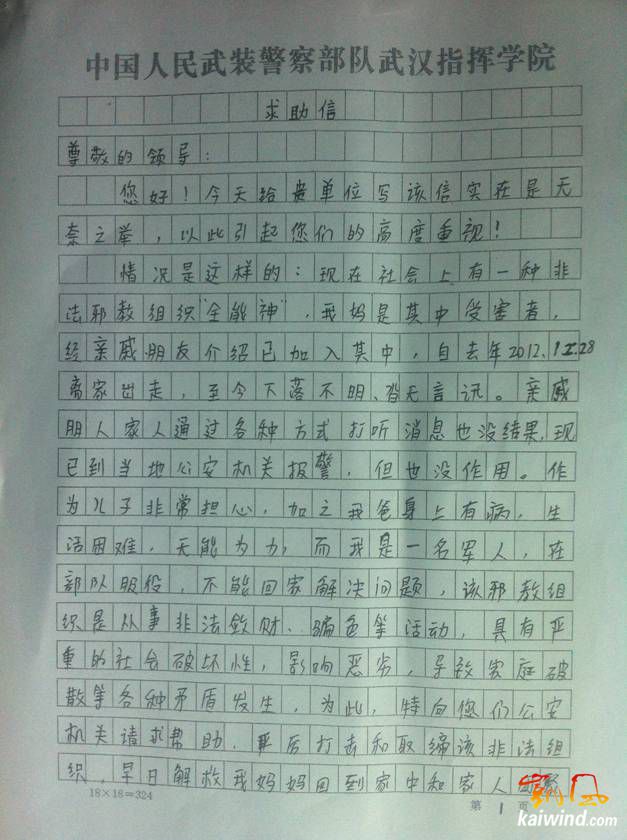 中国人民武装警察部队武汉指挥学院
求助信
尊敬的领导：
您好！今天给贵单位写该信实在是无
奈之举，以此引起您们的高度重视！
情况是这样的：现在社会上有一种非
法邪教组织"全能神"，我妈是其中受害者，
经亲戚朋友介绍已加入其中，自去年2012.12.28
离家出走，至今下落不明、沓无言讯。亲戚
朋人家人通过各种方式打听消息也没结果，现
已到当地公安机关报警，但也没作用。作
为儿子非常担心，加之我爸身上有病，生
活困难，无能为力；而我是一名军人，在
部队服役，不能回家解决问题，该邪教组
织是从事非法敛财、骗色等活动，具有严
重的社会破坏性，影响恶劣，导致家庭破
散等各种矛盾发生，为此，特向您们公安
机关请求帮助，严厉打击和取缔该非法组
织，早日解救我妈妈回到家中和家人团聚
18×18=324
第 1 页
凯风
kaiwind.com